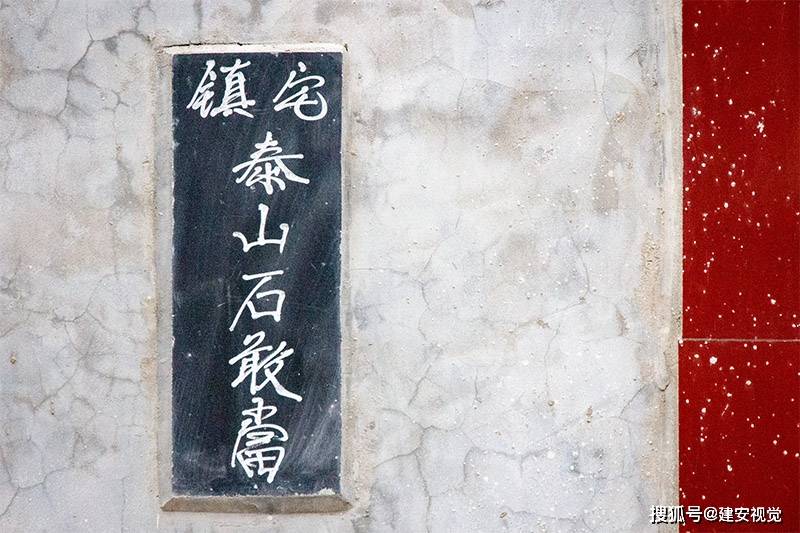 镇宅
泰山石敢當
搜狐号@建安视觉